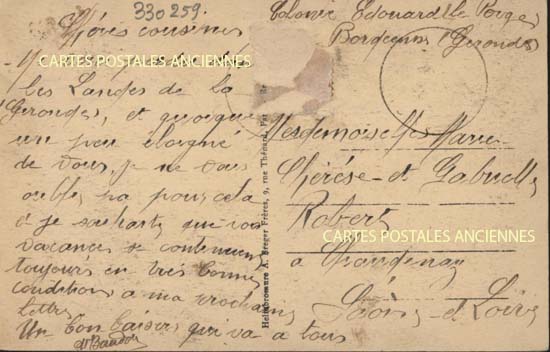 330259.
Chères cousines
les Landes de la
Gironde, et quoique
un peu éloigné
de vous, je ne vous
oublie pas pour cela
et je souhaite que vos
vacances se continuent
toujours en très bonnes
conditions à ma prochaine
lettre
Un bon baiser qui va à tous
Colonie Edouard
Bordeaux (Gironde)
Mesdemoiselles Marie
Thérèse et Gabrielle
Robert
à
Saône-et-Loire
Héliobromure A. Breger Frères, 9, rue Thénard, Paris
CARTES POSTALES ANCIENNES
CARTES POSTALES ANCIENNES